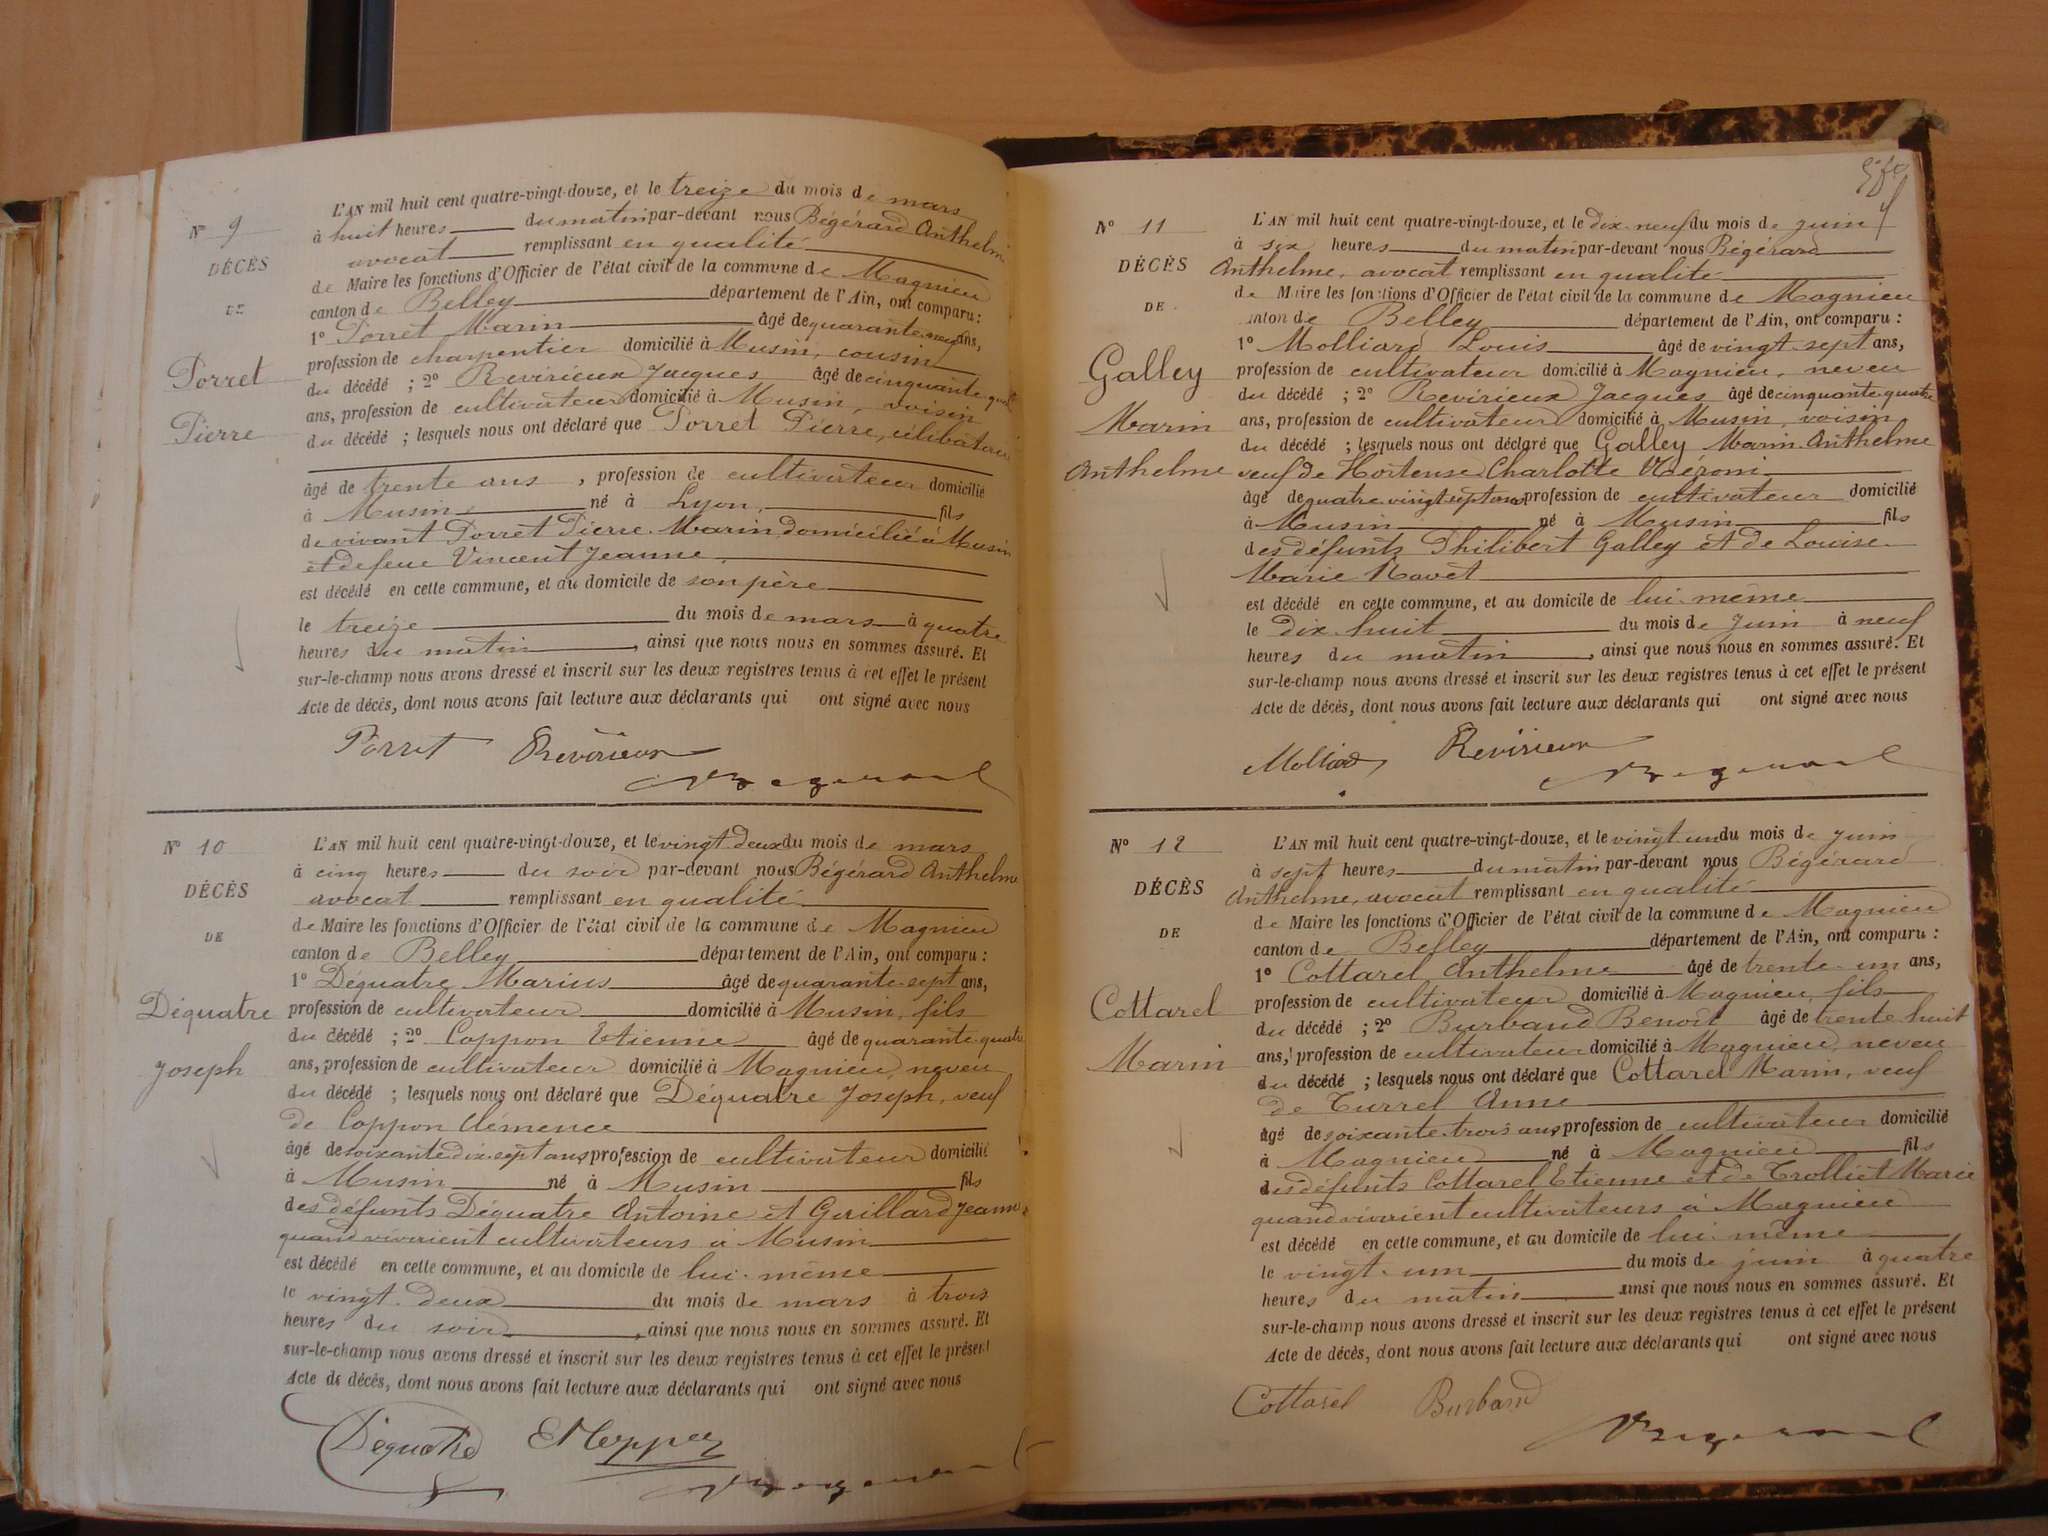 Nº 9
DÉCÈS
DE
Porret
Pierre
L'AN mil huit cent quatre-vingt-douze, et le treize du mois de mars
à huit heures du matin par-devant nous Bégérard Anthelme
avocat remplissant en qualité
de Maire les fonctions d'Officier de l'état civil de la commune de Magnieu
canton de Belley département de l'Ain, ont comparu :
1º Porret Marin âgé de quarante-neuf ans,
profession de charpentier domicilié à Musin, cousin
du décédé ; 2º Revirieux Jacques âgé de cinquante quatre
ans, profession de cultivateur domicilié à Musin, voisin
du décédé ; lesquels nous ont déclaré que Porret Pierre, célibataire
âgé de trente ans , profession de cultivateur domicilié
à Musin né à Lyon, fils
de vivant Porret Pierre Marin domicilié à Musin
et de feue Vincent Jeanne
est décédé en cette commune, et au domicile de son père
le treize du mois de mars à quatre
heures du matin , ainsi que nous nous en sommes assuré. Et
sur-le-champ nous avons dressé et inscrit sur les deux registres tenus à cet effet le présent
Acte de décès, dont nous avons fait lecture aux déclarants qui ont signé avec nous
Porret Revirieux
Bégérard
Nº 10
DÉCÈS
DE
Déquatre
Joseph
L'AN mil huit cent quatre-vingt-douze, et le vingt-deux du mois de mars
à cinq heures du soir par-devant nous Bégérard Anthelme
avocat remplissant en qualité
de Maire les fonctions d'Officier de l'état civil de la commune de Magnieu
canton de Belley département de l'Ain, ont comparu :
1º Déquatre Marius âgé de quarante-sept ans,
profession de cultivateur domicilié à Musin, fils
du décédé ; 2º Coppon Etienne âgé de quarante-quatre
ans, profession de cultivateur domicilié à Magnieu, neveu
du décédé ; lesquels nous ont déclaré que Déquatre Joseph, veuf
de Coppon Clémence
âgé de soixante dix-sept ans, profession de cultivateur domicilié
à Musin né à Musin fils
des défunts Déquatre Antoine et Guillard Jeanne
quand vivaient cultivateurs à Musin
est décédé en cette commune, et au domicile de lui-même
le vingt-deux du mois de mars à trois
heures du soir , ainsi que nous nous en sommes assuré. Et
sur-le-champ nous avons dressé et inscrit sur les deux registres tenus à cet effet le présent
Acte de décès, dont nous avons fait lecture aux déclarants qui ont signé avec nous
Déquatre ECoppon
Bégérard
Nº 11
DÉCÈS
DE
Galley
Marin
Anthelme
L'AN mil huit cent quatre-vingt-douze, et le dix-neuf du mois de juin
à six heures du matin par-devant nous Bégérard
Anthelme, avocat remplissant en qualité
de Maire les fonctions d'Officier de l'état civil de la commune de Magnieu
canton de Belley département de l'Ain, ont comparu :
1º Molliard Louis âgé de vingt-sept ans,
profession de cultivateur domicilié à Magnieu, neveu
du décédé ; 2º Revirieux Jacques âgé de cinquante-quatre
ans, profession de cultivateur domicilié à Musin, voisin
du décédé ; lesquels nous ont déclaré que Galley Marin Anthelme
veuf de Hortense Charlotte
âgé de quatre vingt sept ans, profession de cultivateur domicilié
à Musin né à Musin fils
des défunts Philibert Galley et de Louise
Marie Ravet
est décédé en cette commune, et au domicile de lui-même
le dix-huit du mois de Juin à neuf
heures du matin , ainsi que nous nous en sommes assuré. Et
sur-le-champ nous avons dressé et inscrit sur les deux registres tenus à cet effet le présent
Acte de décès, dont nous avons fait lecture aux déclarants qui ont signé avec nous
Molliard Revirieux
Bégérard
Nº 12
DÉCÈS
DE
Cottarel
Marin
L'AN mil huit cent quatre-vingt-douze, et le vingt un du mois de juin
à sept heures du matin par-devant nous Bégérard
Anthelme, avocat remplissant en qualité
de Maire les fonctions d'Officier de l'état civil de la commune de Magnieu
canton de Belley département de l'Ain, ont comparu :
1º Cottarel Anthelme âgé de trente-un ans,
profession de cultivateur domicilié à Magnieu, fils
du décédé ; 2º Burband Benoit âgé de trente huit
ans, profession de cultivateur domicilié à Magnieu, neveu
du décédé ; lesquels nous ont déclaré que Cottarel Marin, veuf
de Turrel Anne
âgé de soixante-trois ans, profession de cultivateur domicilié
à Magnieu né à Magnieu fils
des défunts Cottarel Etienne et de Trolliet Marie
quand vivaient cultivateurs à Magnieu
est décédé en cette commune, et au domicile de lui-même
le vingt-un du mois de juin à quatre
heures du matin ainsi que nous nous en sommes assuré. Et
sur-le-champ nous avons dressé et inscrit sur les deux registres tenus à cet effet le présent
Acte de décès, dont nous avons fait lecture aux déclarants qui ont signé avec nous
Cottarel Burband
Bégérard